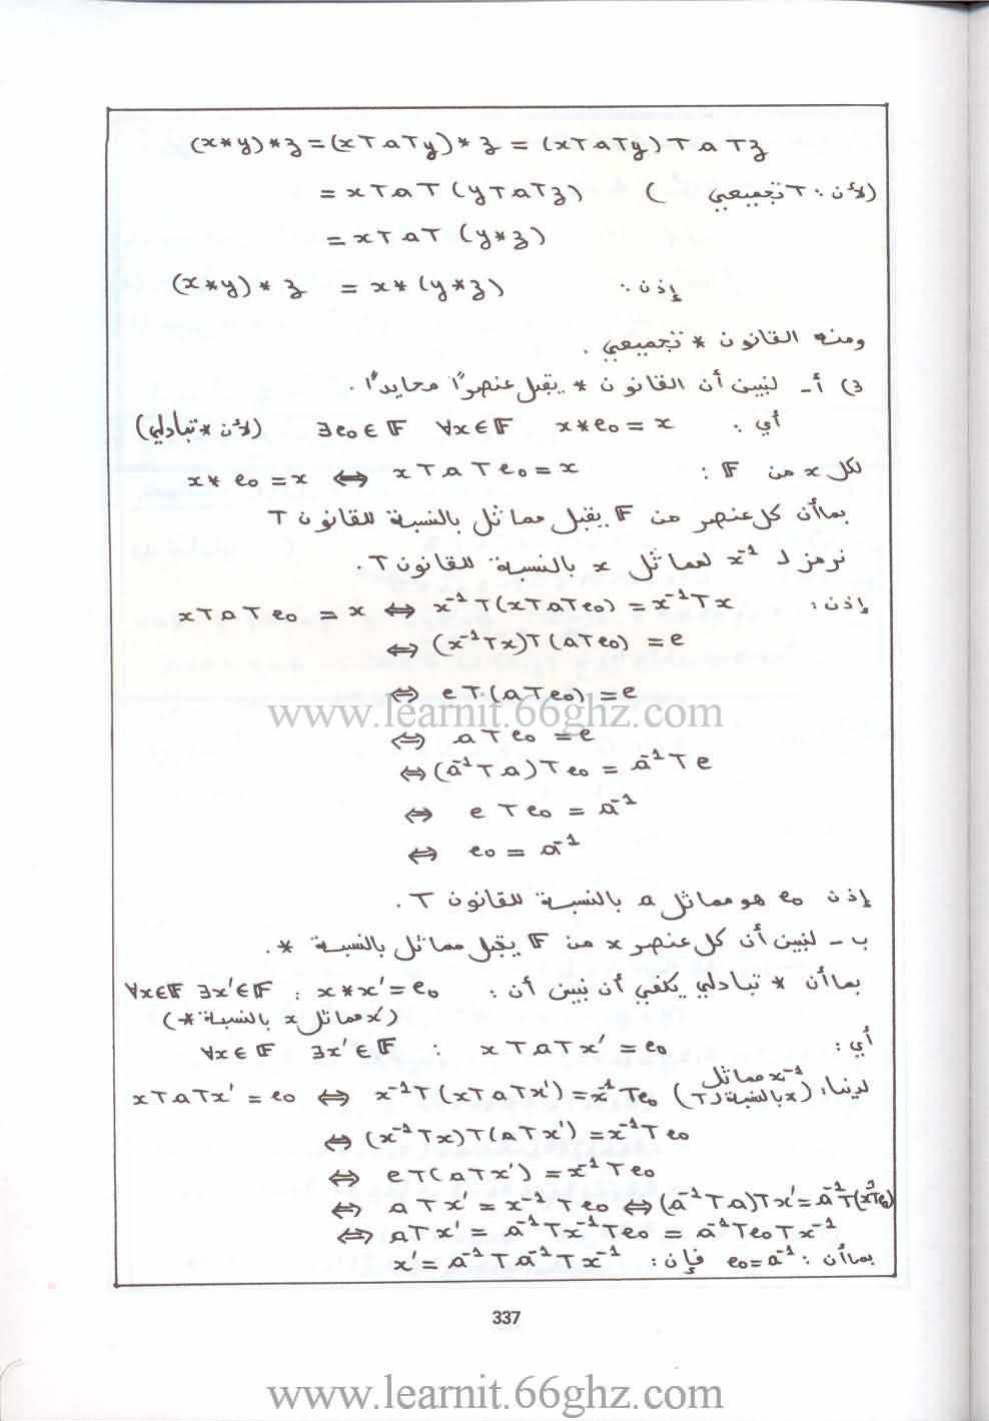 (x*y)*z=(xTaTy)*z = (xTaTy)TaTz
=xTaT(yTaTz) (لأن : T تجميعي )
=xTaT (y*z)
إذن : (x*y)*z = x*(y*z)
ومنه القانون * تجميعي .
3) أ- لنبين أن القانون * يقبل عنصرًا محايدًا .
أي : ∃e₀∈𝔽 ∀x∈𝔽 x*e₀=x (لأن * تبادلي)
لكل x من 𝔽 : x*e₀=x ⇔ xTaTe₀=x
بما أن كل عنصر من 𝔽 يقبل مماثل بالنسبة للقانون T
نرمز لـ x⁻¹ لمماثل x بالنسبة للقانون T .
إذن : xTaTe₀ = x ⇔ x⁻¹T(xTaTe₀) = x⁻¹Tx
⇔ (x⁻¹Tx)T(aTe₀) = e
⇔ eT(aTe₀) = e
www.learnit.66ghz.com
⇔ aTe₀ = e
⇔ (a⁻¹Ta)Te₀ = a⁻¹Te
⇔ eTe₀ = a⁻¹
⇔ e₀ = a⁻¹
إذن e₀ هو مماثل a بالنسبة للقانون T .
ب - لنبين أن كل عنصر x من 𝔽 يقبل مماثل بالنسبة * .
بما أن * تبادلي يكفي أن نبين أن : ∀x∈𝔽 ∃x'∈𝔽 : x*x'=e₀
(x' مماثل x بالنسبة *)
أي : ∀x∈𝔽 ∃x'∈𝔽 : xTaTx' = e₀
لدينا : (x⁻¹ مماثل x بالنسبة لـ T) xTaTx' = e₀ ⇔ x⁻¹T(xTaTx') = x⁻¹Te₀
⇔ (x⁻¹Tx)T(aTx') = x⁻¹Te₀
⇔ eT(aTx') = x⁻¹Te₀
⇔ aTx' = x⁻¹Te₀ ⇔ (a⁻¹Ta)Tx' = a⁻¹T(x⁻¹Te₀)
⇔ aTx' = a⁻¹Tx⁻¹Te₀ = a⁻¹Te₀Tx⁻¹
بما أن : e₀=a⁻¹ فإن : x' = a⁻¹Ta⁻¹Tx⁻¹
337
www.learnit.66ghz.com